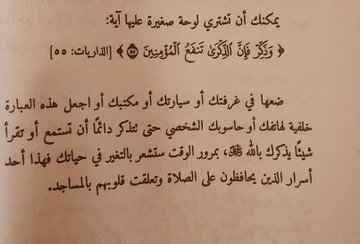 يمكنك أن تشتري لوحة صغيرة عليها آية:
﴿ وَذَكِّرْ فَإِنَّ ٱلذِّكْرَىٰ تَنفَعُ ٱلْمُؤْمِنِينَ ۝٥٥ ﴾ [الذاريات: ٥٥]
ضعها في غرفتك أو سيارتك أو مكتبك أو اجعل هذه العبارة
خلفية لهاتفك أو حاسوبك الشخصي حتى تتذكر دائمًا أن تستمع أو تقرأ
شيئًا يذكرك بالله ﷻ، بمرور الوقت ستشعر بالتغير في حياتك فهذا أحد
أسرار الذين يحافظون على الصلاة وتعلقت قلوبهم بالمساجد.